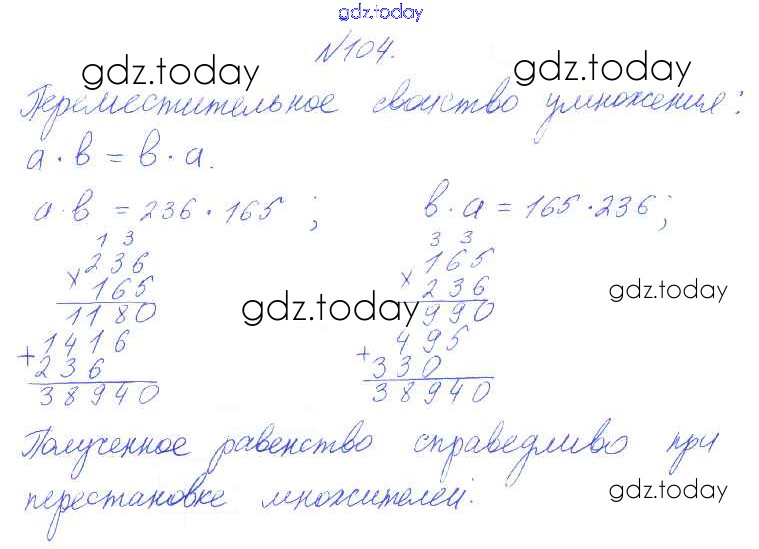 gdz.today
№104.
gdz.today gdz.today
Переместительное свойство умножения:
a · b = b · a.
a · b = 236 · 165 ; b · a = 165 · 236;
1 3 3 3
236 165
× 165 × 236
1180 990
gdz.today gdz.today
1416 495
+ 236 + 330
38940 38940
Полученное равенство справедливо при
gdz.today
перестановке множителей.
gdz.today